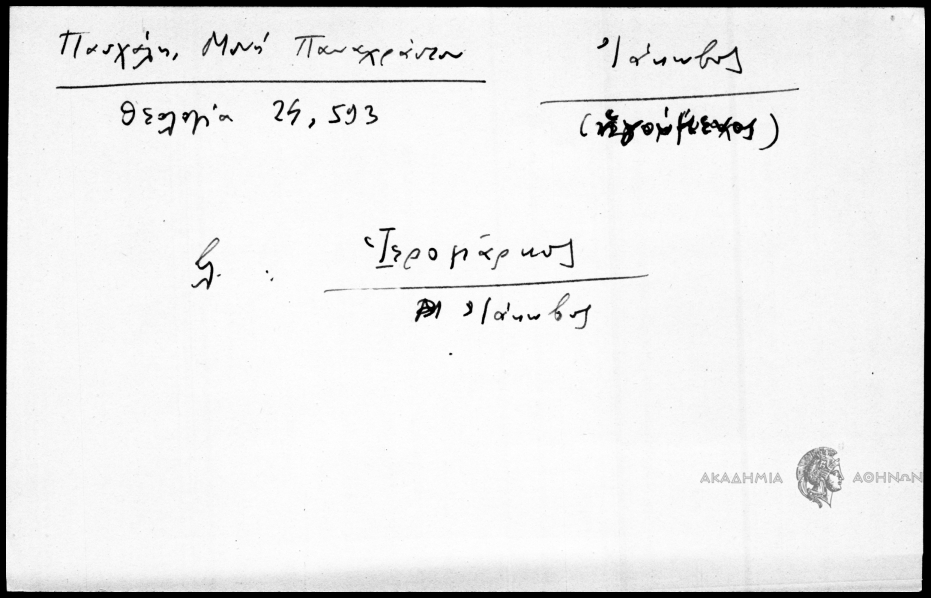 Πασχάλη, Μονή Παναχράντου
Θεολογία 25, 593
Ἰάκωβος
(ἡγούμενος)
βλ. : Ἱερομάρκος
Ἰάκωβος
ΑΚΑΔΗΜΙΑ ΑΘΗΝΩΝ